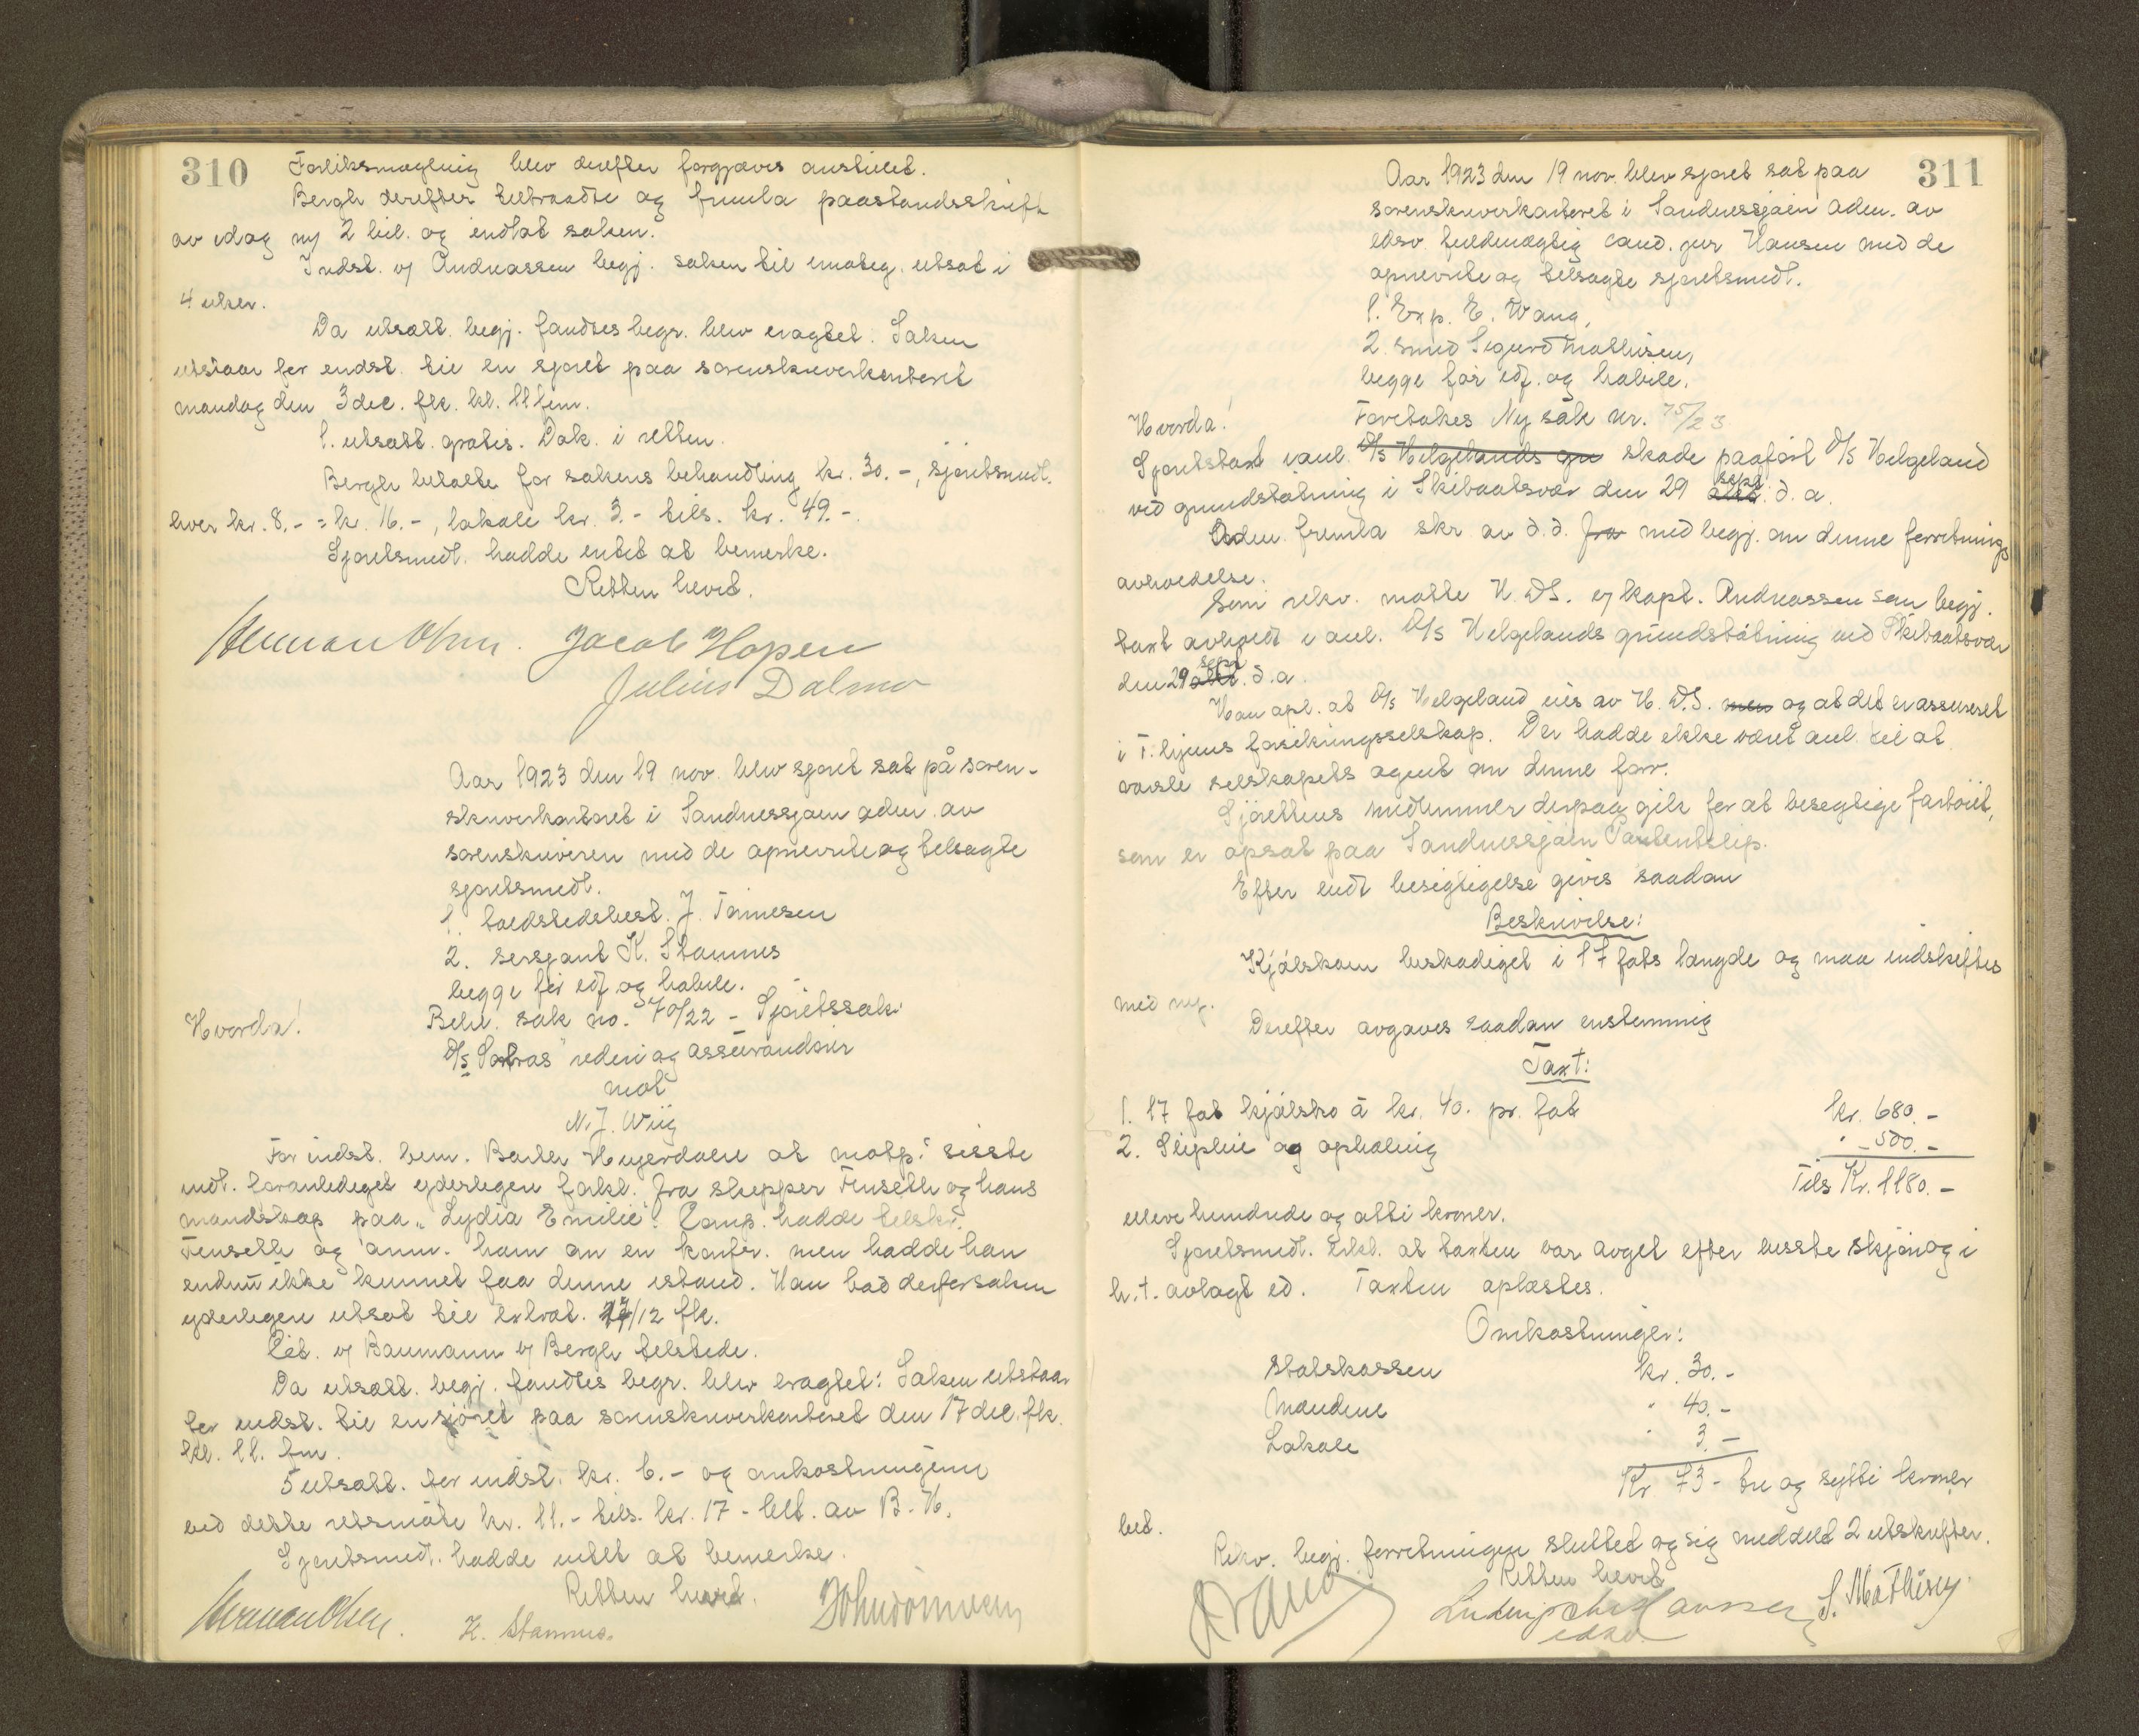 310
Forliksmægling blev derefter forgjæves anstillet.
Bergh derefter tiltraadte og fremla paastandsskrift
av idag m/ 2 bil. og indlot saken.
Indst. v/ Andreassen begj. saken til imøteg. utsat i
4 uker.
Da utsætt. begj. fandtes begr. blev eragtet: Saken
utstaar for indst. til en sjøret paa sorenskriverkontoret
mandag den 3 dec. fk. kl. 11 fm.
1. utsætt. gratis. Dok. i retten.
Bergh betalte for sakens behandling kr. 30.-, sjøretsmedl.
hver kr. 8.- = kr. 16.-, lokale kr. 3.- tils. kr. 49.-
Sjøretsmedl. hadde intet at bemerke.
Retten hevet.
Herman Ohm. Jacob Hopen
Julius Dalmo
Aar 1923 den 19 nov. blev sjøret sat på soren-
skriverkontoret i Sandnessjøen adm. av
sorenskriveren med de opnevnte og tilsagte
sjøretsmedl.
1. toldstedsbest. J. Tønnesen
2. sersjant K. Stamnes
begge før edf. og habile.
Hvorda!
Beh. sak no. 70/22 - Sjøretssak:
D/S "Santras" rederi og assurandører
mot
N. J. Wiig
For indst. bem. Barler Hegerdahl at motp. i sisste
med. foranlediget yderligere forkl. fra skipper Finseth og hans
mandskap paa "Lydia Emilie". Comp. hadde tilskr.
Finseth og anm. ham om en konfr. men hadde han
endnu ikke kunnet faa denne istand. Han bad derfor saken
yderligere utsat til extrat. 17/12 fk.
Cit. v/ Baumann v/ Bergh tilstede.
Da utsætt. begj. fandtes begr. blev eragtet: Saken utstaar
for indst. til en sjöret paa sorenskriverkontoret den 17 dec. fk.
kl. 11. fm.
5 utsætt. for indst. kr. 6.- og omkostningene
ved dette retsmöte kr. 11.- tils. kr. 17 - blt. av B. H.
Sjøretsmedl. hadde intet at bemerke.
Retten hevet.
Herman Ohm. K. Stamnes. Joh Tönnesen
311
Aar 1923 den 19 nov. blev sjøret sat paa
sorenskriverkontoret i Sandnessjøen adm. av
edsv. fuldmægtig cand. jur Hansen med de
opnevnte og tilsagte sjøretsmedl.
1. Exp. E. Wang,
2. smed Sigurd Mathisen,
begge før edf. og habile.
Hvorda!
Foretokes Ny sak nr. 75/23
Sjøretstaxt i anl. D/S Helgelands gr skade paaført D/S Helgeland
ved grundstøtning i Skibaatsvær den 29 okt. sept. d. a.
Adm. fremla skr. av d.d. fra med begj. om denne forretnings
avholdelse.
Som rekv. møtte H. D.S. v/ kapt. Andreassen som begj.
taxt avholdt i anl. D/S Helgelands grundstötning ved Skibaatsvær
den 29 okt. sept d. a.
Han opl. at D/S Helgeland eies av H. D.S. men og at det er assureret
i T. hjems forsikringsselskap. Der hadde ikke været anl. til at
varsle selskapets agent om denne forr.
Sjörettens medlemmer derpaa gik for at besigtige fartöiet,
som er opsat paa Sandnessjøen Patentslip.
Efter endt besigtigelse givis saadan
Beskrivelse:
Kjölskoen beskadiget i 17 fots længde og maa indskiftes
med ny.
Derefter avgaves saadan enstemmig
Taxt:
1. 17 fot kjölsko á kr. 40. pr. fot kr. 680.-
2. Sliphie og ophaling " - 500.-
Tils Kr. 1180.-
elleve hundrede og otti kroner.
Sjøretsmedl. erkl. at taxten var avget efter beste skjön og i
h. t. avlagt ed. Taxten oplæstes.
Omkostninger:
Statskassen kr. 30.-
Mændene " 40.-
Lokale " 3.-
Kr 73 - tre og sytti kroner
bet.
Rekv. begj. forretningen sluttet og sig meddelt 2 utskrifter.
Retten hevet
E Wang Ludvig Hansen S. Mathisen
edsv.